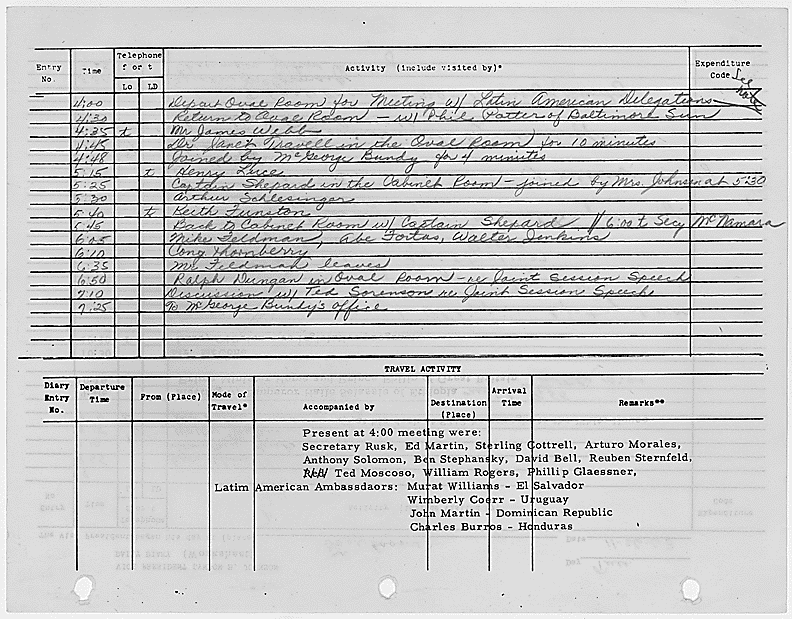 Entry No. Time Telephone f or t Lo LD Activity (include visited by)* Expenditure Code See note
4:00 Depart Oval Room for Meeting w/ Latin American Delegations
4:30 Return to Oval Room - w/ Phil Potter of Baltimore Sun
4:35 t Mr James Webb
4:45 Dr Janet Travell in the Oval Room for 10 minutes
4:48 Joined by McGeorge Bundy for 4 minutes
5:15 t Henry Luce
5:25 Captain Shepard in the Cabinet Room - joined by Mrs. Johnson at 5:30
5:30 Arthur Schlesinger
5:40 t Keith Funston
5:45 Back to Cabinet Room w/ Captain Shepard // 6:00 t Secy McNamara
6:05 Mike Feldman, Abe Fortas, Walter Jenkins
6:10 Cong Thornberry
6:35 Mr Feldman leaves
6:50 Ralph Dungan in Oval Room - re Joint Session Speech
7:10 Discussion w/ Ted Sorenson re Joint Session Speech
7:25 To McGeorge Bundy's office
TRAVEL ACTIVITY
Diary Entry No. Departure Time From (Place) Mode of Travel* Accompanied by Destination (Place) Arrival Time Remarks**
Present at 4:00 meeting were:
Secretary Rusk, Ed Martin, Sterling Cottrell, Arturo Morales,
Anthony Solomon, Ben Stephansky, David Bell, Reuben Sternfeld,
Ted Moscoso, William Rogers, Phillip Glaessner,
Latim American Ambassdaors: Murat Williams - El Salvador
Wimberly Coerr - Uruguay
John Martin - Dominican Republic
Charles Burros - Honduras